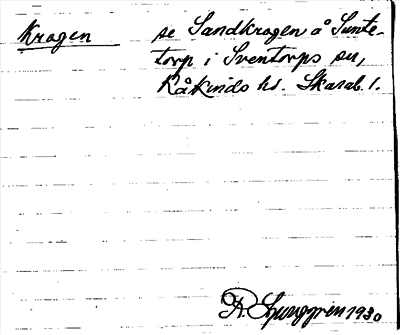 Kragen se Sandkragen å Sunte-
torp i Sventorps sn,
Kåkinds hd. Skarab. l.
R. Ljunggren 1930